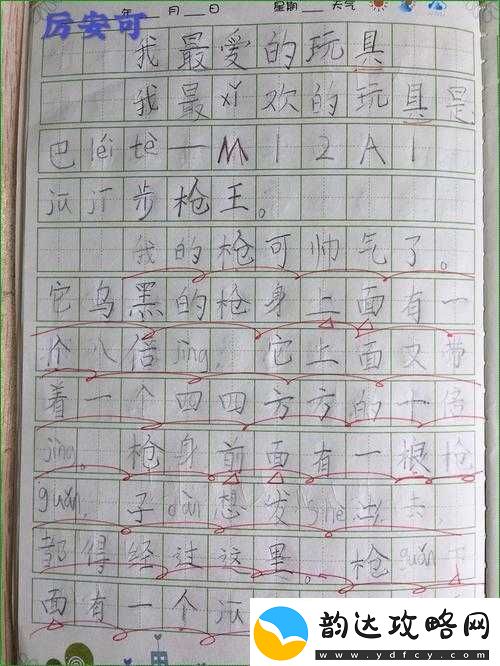 年 月 日 星期 天气
厉安可
我最爱的玩具
我最xǐ欢的玩具是
巴léi tè一M12A1
jū jī步枪王。
我的枪可帅气了。
它乌黑的枪身上面有一
个八倍jìng,它上面又带
着一个四四方方的十倍
jìng。枪身前面有一根枪
guǎn,子dàn想发shè出去,
都得经过这里。枪guǎn下
面有一个
韵达攻略网
www.ydfcy.com